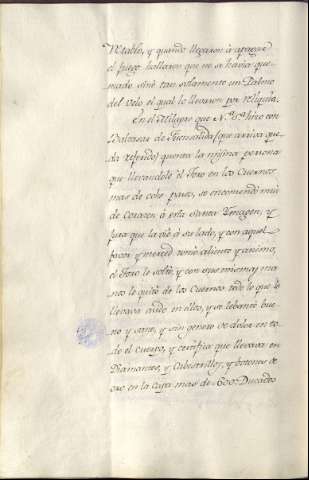 Retablo, y quando llegaron à apagar
el fuego hallaron que no se havia que-
mado sino tan solamente un Palmo
del velo, el qual lo llevaron por Reliquia.
En el Milagro que N.ª S.ª hizo con
Balthasar de Fuensalida (que arriva que-
da referido) quenta la misma persona
que llevandole el Toro en los Cuernos
mas de ocho pasos, se encomendò mui
de Corazon à esta Santa Ymagen, y
jura que la viò à su lado, y con aquel
favor y merced tomò aliento y animo,
el Toro le soltò, y con sus mismas ma-
nos le quitò de los Cuernos todo lo que le
llevava asido en ellos, y se lebantò bue-
no y sano, y sin genero de dolor en to-
do el cuerpo, y certifica que llevava en
Diamantes, y Cabestrillos, y botones de
oro en la Capa mas de 600 Ducados